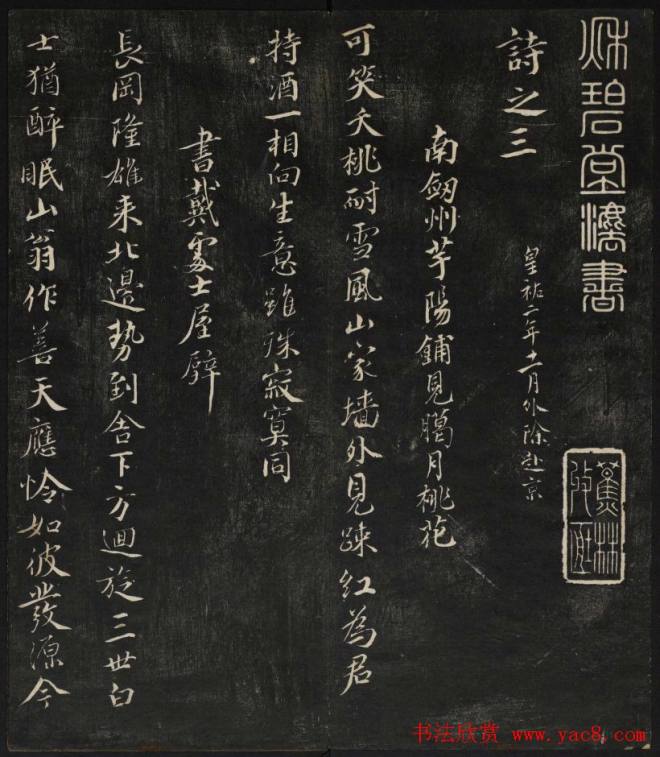 秋碧堂法書
詩之三
皇祐二年十一月外除赴京
南劒州芋陽鋪見臈月桃花
可笑夭桃耐雪風山家墻外見疎紅為君
持酒一相向生意雖殊寂寞同
書戴處士屋壁
長岡隆雄来北邊勢到舍下方迴旋三世白
士猶醉眠山翁作善天應怜如彼發源今
蕉林
書法欣赏 www.yac8.com